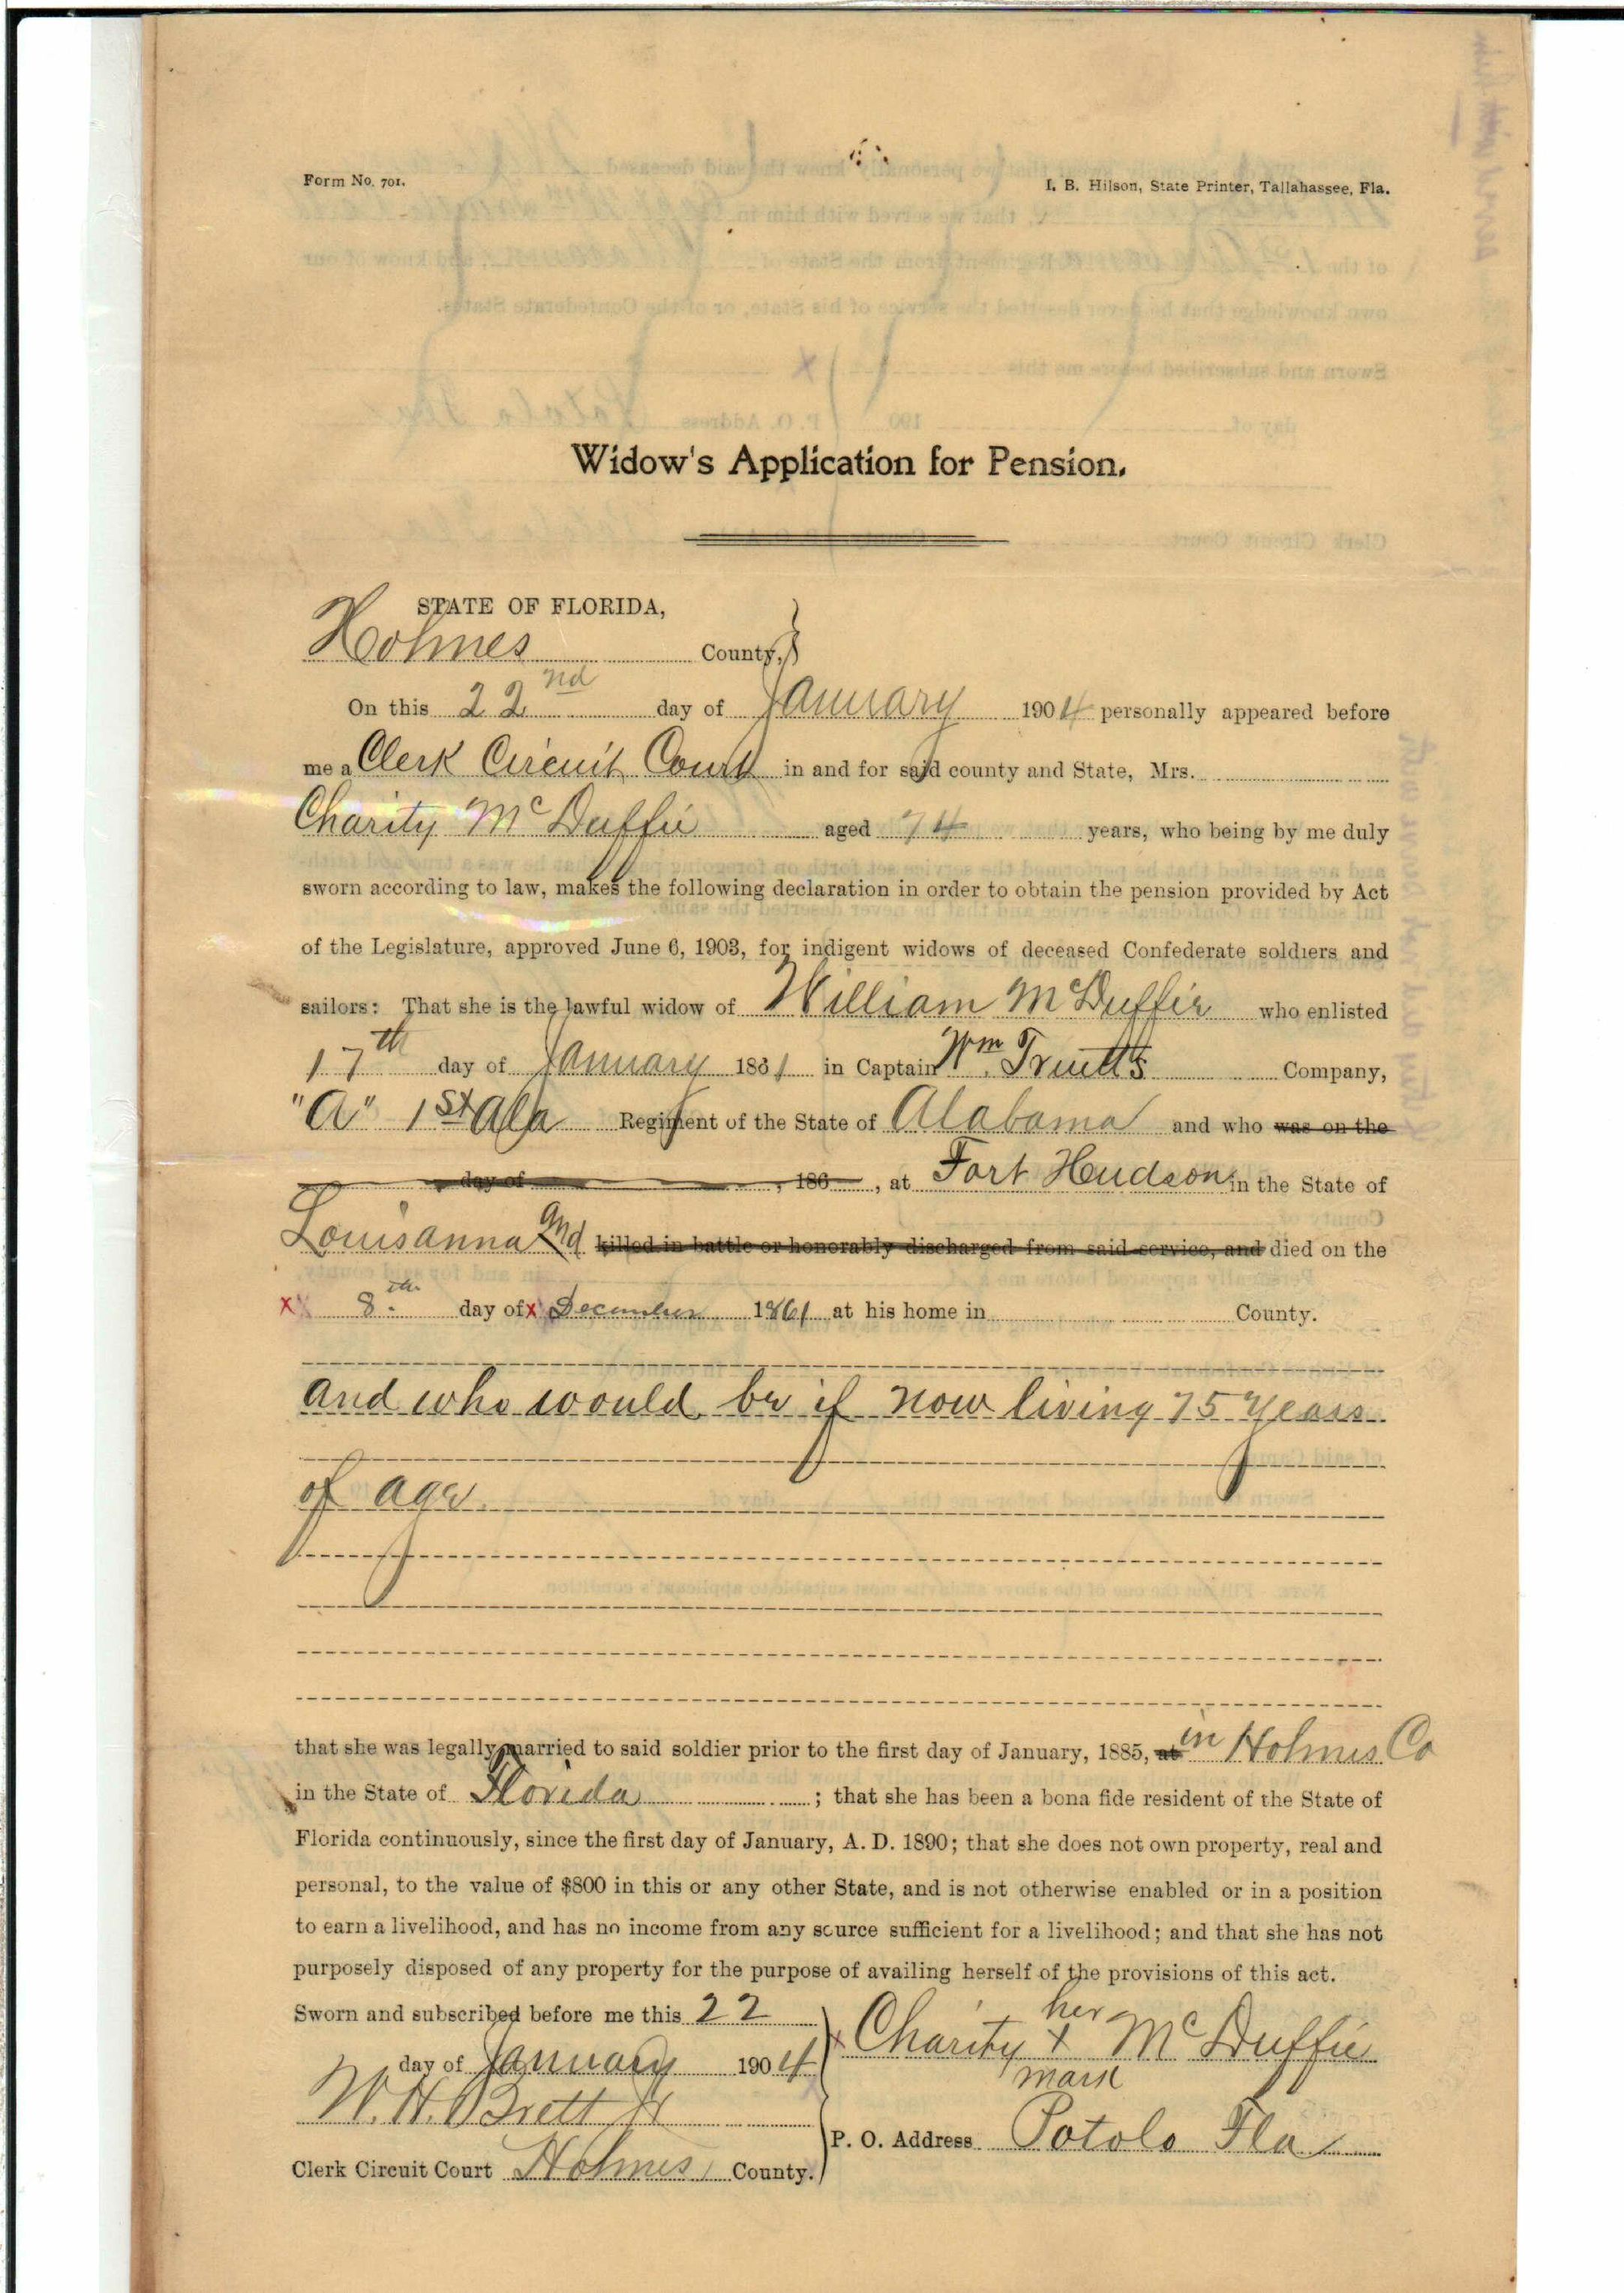 Form No. 701.
I. B. Hilson, State Printer, Tallahassee, Fla.
Widow's Application for Pension.
STATE OF FLORIDA,
Holmes County,
On this 22nd day of January 1904 personally appeared before
me a Clerk Circuit Court in and for said county and State, Mrs.
Charity McDuffie aged 74 years, who being by me duly
sworn according to law, makes the following declaration in order to obtain the pension provided by Act
of the Legislature, approved June 6, 1903, for indigent widows of deceased Confederate soldiers and
sailors: That she is the lawful widow of William McDuffie who enlisted
17th day of January 1861 in Captain Wm. Truitt's Company,
"A" 1st Ala Regiment of the State of Alabama and who was on the
day of , 186 , at Fort Hudson in the State of
Louisanna and killed in battle or honorably discharged from said service, and died on the
xx 8th. day of x December 1861 at his home in County.
and who would be if now living 75 years
of age.
that she was legally married to said soldier prior to the first day of January, 1885, at in Holmes Co
in the State of Florida ; that she has been a bona fide resident of the State of
Florida continuously, since the first day of January, A. D. 1890; that she does not own property, real and
personal, to the value of $800 in this or any other State, and is not otherwise enabled or in a position
to earn a livelihood, and has no income from any source sufficient for a livelihood; and that she has not
purposely disposed of any property for the purpose of availing herself of the provisions of this act.
Sworn and subscribed before me this 22
day of January 1904
W. H. Brett Jr
Clerk Circuit Court Holmes County.
her
x Charity x McDuffie
mark
P. O. Address Potolo Fla